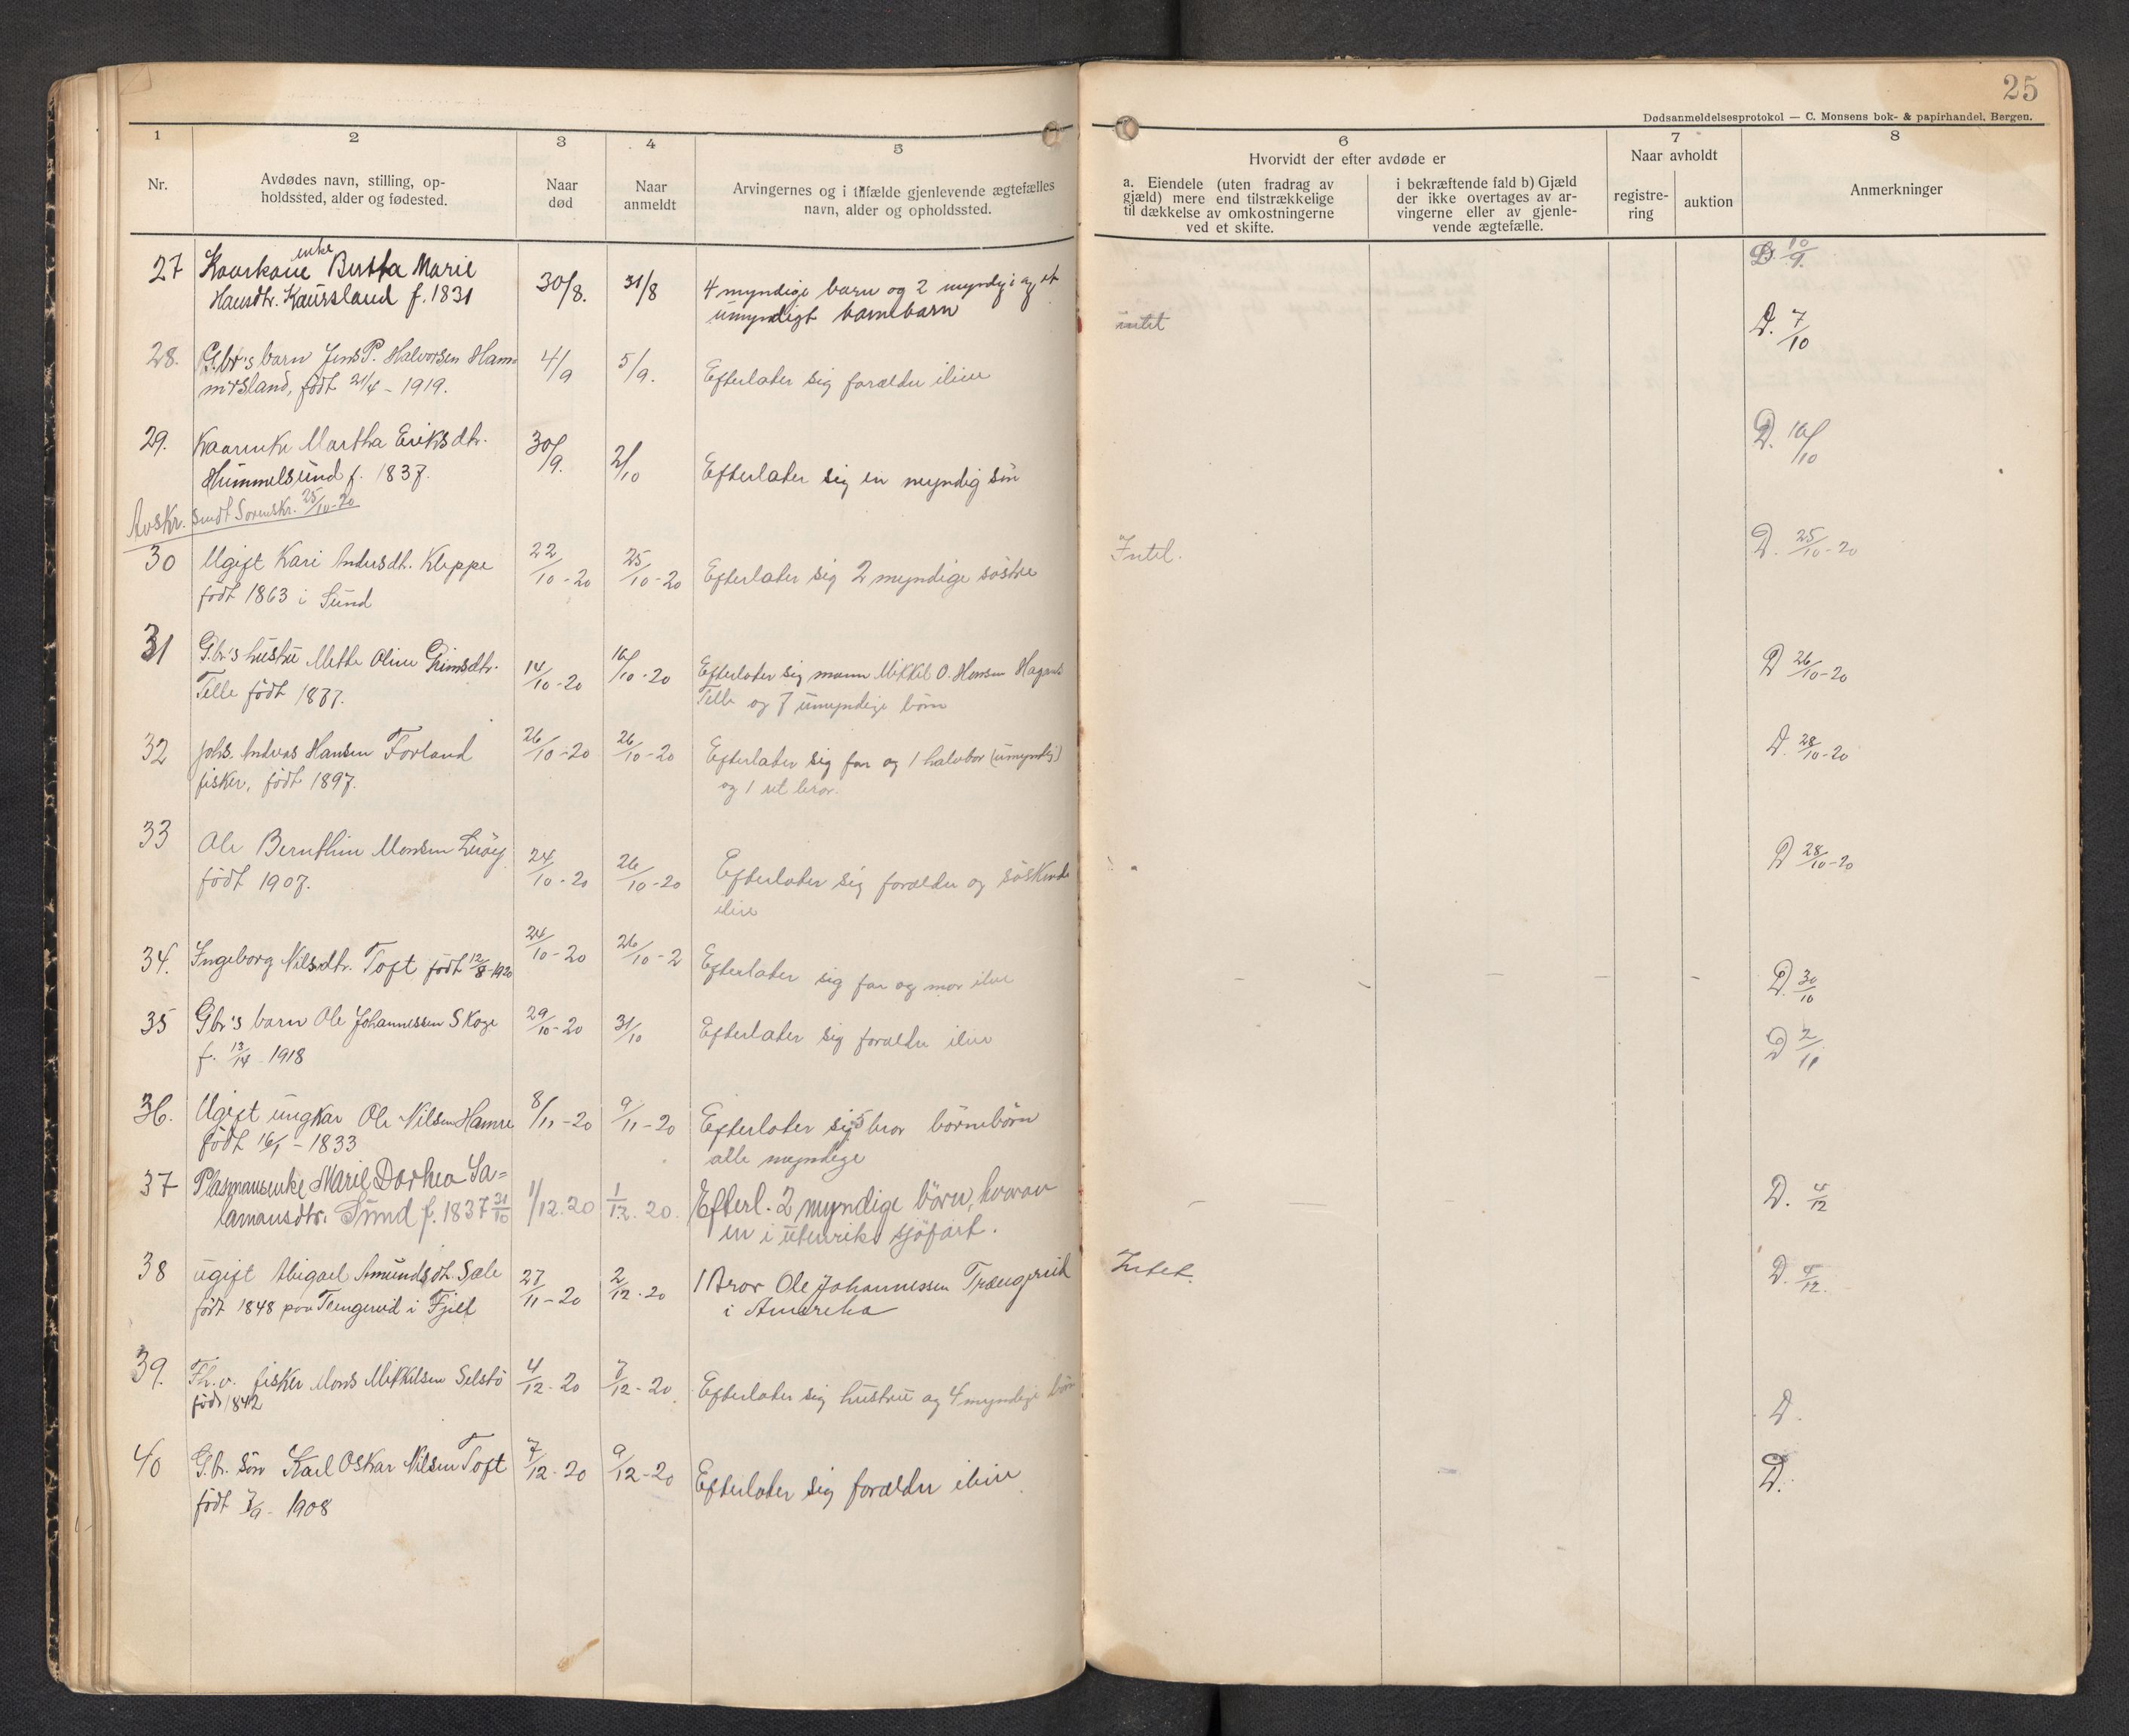 25
Dødsanmeldelsesprotokol — C. Monsens bok- & papirhandel, Bergen.
1 2 3 4 5 6 7 8
Nr.
Avdødes navn, stilling, op-
holdssted, alder og fødested.
Naar
død
Naar
anmeldt
Arvingernes og i tilfælde gjenlevende ægtefælles
navn, alder og opholdssted.
Hvorvidt der efter avdøde er
a. Eiendele (uten fradrag av
gjæld) mere end tilstrækkelige
til dækkelse av omkostningerne
ved et skifte.
i bekræftende fald b) Gjæld
der ikke overtages av ar-
vingerne eller av gjenle-
vende ægtefælle.
Naar avholdt
registre-
ring
auktion
Anmerkninger
enke
27 Kaarkone Berta Marie 30/8. 31/8 4 myndige barn og 2 myndige og et D 10/9.
Hansdtr. Kaursland f. 1831 umyndigt barnebarn intet
28. G.br's barn Jens P. Halvorsen Ham= 4/9 5/9. Efterlater sig forældre ilive D. 7/10
mersland, født 21/4 - 1919.
29. Kaarenke Martha Eriksdtr. 30/9. 2/10 Efterlater sig en myndig sön D. 16/10
Hummelsund f. 1837.
Avskr. sendt Sorenskr. 25/10-20
30 Ugift Kari Andersdt. Kleppe 22/10-20 25/10-20 Efterlater sig 2 myndige söstre Intet. D. 25/10-20
født 1863 i Sund
31 G.br's hustru Mette Oline Grimsdtr. 14/10-20 16/10-20 Efterlater sig mann Mikkel O. Hansen D 26/10-20
Telle født 1877. Telle og 7 umyndige börn
32 Johs. Andreas Hansen Forland 26/10-20 26/10-20 Efterlater sig far og 1 halvbror (umyndig) D. 28/10-20
fisker, født 1897. og 1 bror.
33 Ole Bernthin Monsen Liröy 24/10-20 26/10-20 Efterlater sig forældre og söskende D 28/10-20
født 1907. ilive
34. Ingeborg Nilsdtr. Toft født 12/8-1920 24/10-20 26/10-2 Efterlater sig far og mor ilive - - - - - D. 30/10
35 Gbr's barn Ole Johannessen Skoge 29/10-20 31/10 Efterlater sig forældre ilive D 2/11
f. 13/4 - 1918
36. Ugift ungkar Ole Nilsen Hamre 8/11-20 9/11-20 Efterlater sig 5 bror börnebörn
født 16/1 - 1833 alle myndige
37 Plasmannsenke Marie Dorhea Sa= 1/12.20 1/12.20. Efterl. 2 myndige börn, hvorav - — D. 4/12
lamonsdtr. Sund f. 1837 31/10 en i utenriks sjöfart.
38 ugift Abigael Amundsdt. Sæle 27/11-20 2/12.20 1 Bror Ole Johannessen Trængereid Intet. D. 4/12.
født 1848 paa Trengereid i Fjell i Amerika
39. Fh.v. fisker Mons Mikkelsen Selstö 4/12-20 7/12-20. Efterlater sig hustru og 4 myndige börn D.
född 1842
40 G.br. sön Karl Oskar Nilsen Toft 7/12-20 9/12-20 Efterlater sig forældre ilive D.
född 7/9 - 1908